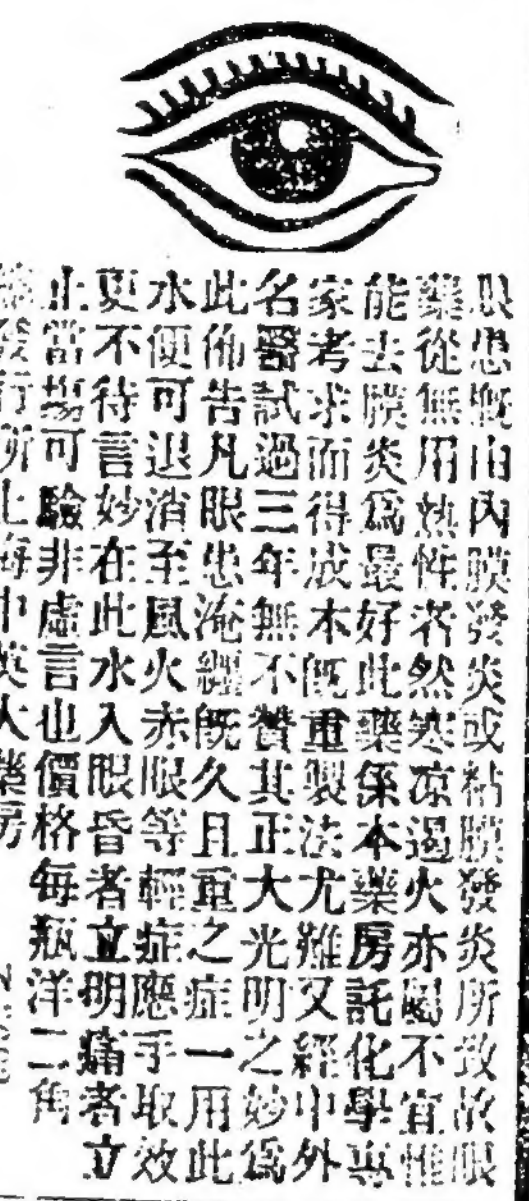 眼患慨由內膜發炎或粘膜發炎所致故眼
藥從無用熱性者然寒凉過火亦屬不宜惟
能去膜炎爲最好此藥係本藥房託化學專
家考求而得成本旣重製法尤難又經中外
名醫試過三年無不贊其正大光明之妙爲
此佈告凡眼患淹纏旣久且重之症一用此
水便可退消至風火赤眼等輕症應手取效
更不待言妙在此水入眼昏者立明痛者立
止當塲可驗非虛言也價格每瓶洋二角
發行所上海中英大藥房